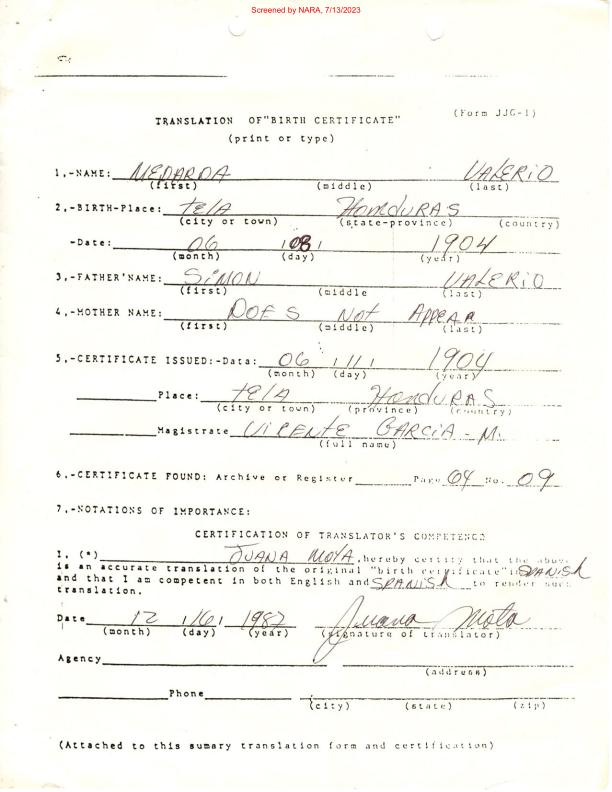 Screened by NARA, 7/13/2023
(Form JJG-1)
TRANSLATION OF"BIRTH CERTIFICATE"
(print or type)
1,-NAME: MEDARDA VALERIO
(first) (middle) (last)
2,-BIRTH-Place: TELA HONDURAS
(city or town) (state-province) (country)
-Date: 06 08 1904
(month) (day) (year)
3,-FATHER'NAME: SIMON VALERIO
(first) (middle (last)
4,-MOTHER NAME: DOES NOT APPEAR
(first) (middle) (last)
5,-CERTIFICATE ISSUED:-Data: 06 /11/ 1904
(month) (day) (year)
Place: TELA HONDURAS
(city or town) (province) (country)
Magistrate VICENTE GARCIA-M.
(full name)
6,-CERTIFICATE FOUND: Archive or Register Page 64 No. 09
7,-NOTATIONS OF IMPORTANCE:
CERTIFICATION OF TRANSLATOR'S COMPETENCE
I, (*) JUANA MOTA, hereby certity that the above
is an accurate translation of the original "birth certificate" in SPANISH
and that I am competent in both English and SPANISH to render such
translation.
Date 12 /16/ 1987 Juana Mota
(month) (day) (year) (signature of translator)
Agency
(address)
Phone
(city) (state) (zip)
(Attached to this sumary translation form and certification)